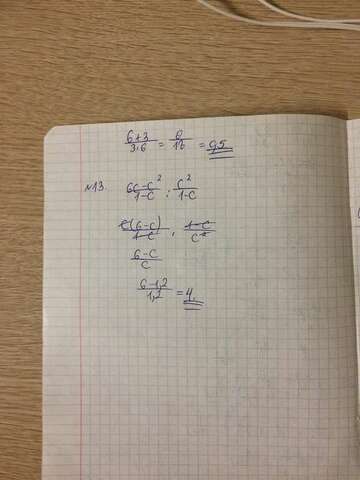 6+3/3·6 = 9/18 = 0,5
№13. 6c-c²/1-c : c²/1-c
c(6-c)/1-c · 1-c/c²
6-c/c
6-1,2/1,2 = 4.